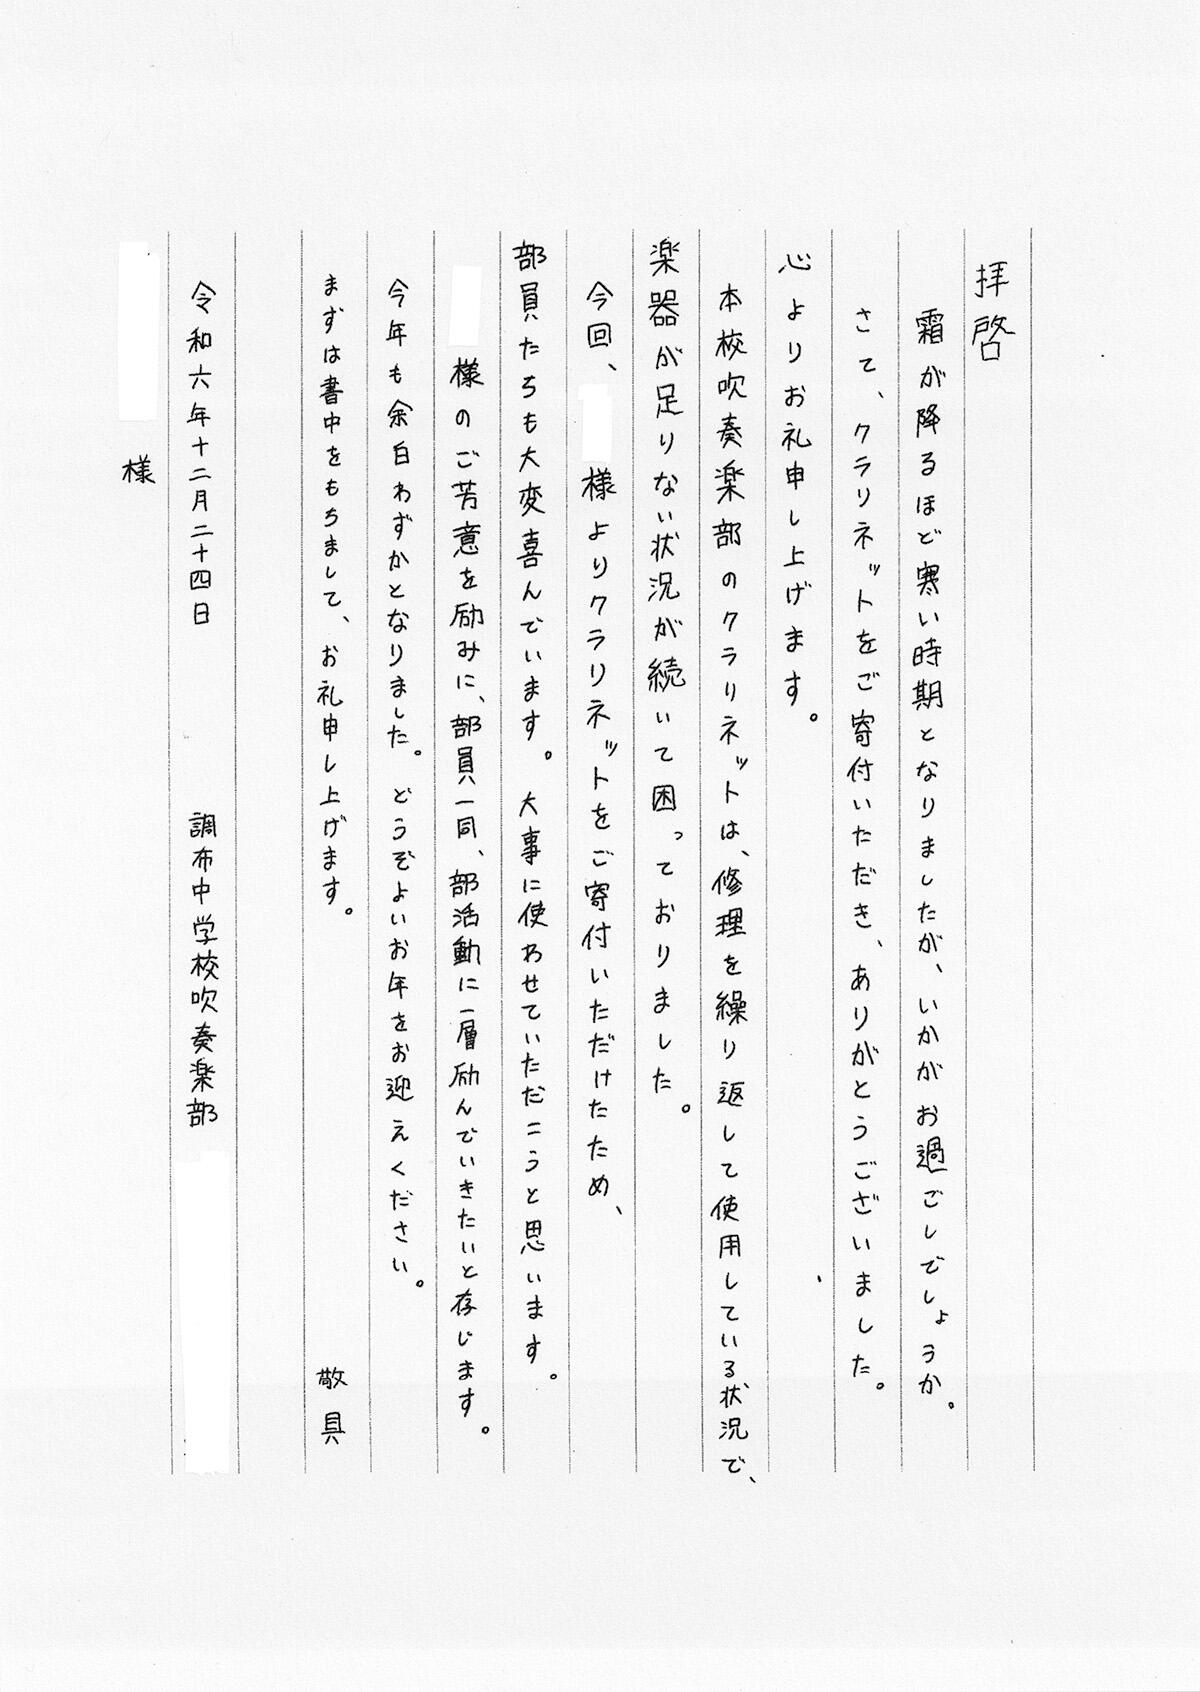 拝啓
霜が降るほど寒い時期となりましたが、いかがお過ごしでしょうか。
さて、クラリネットをご寄付いただき、ありがとうございました。
心よりお礼申し上げます。
本校吹奏楽部のクラリネットは、修理を繰り返して使用している状況で、
楽器が足りない状況が続いて困っておりました。
今回、様よりクラリネットをご寄付いただけたため、
部員たちも大変喜んでいます。大事に使わせていただこうと思います。
様のご芳意を励みに、部員一同、部活動に一層励んでいきたいと存じます。
今年も余白わずかとなりました。どうぞよいお年をお迎えください。
まずは書中をもちまして、お礼申し上げます。
敬具
令和六年十二月二十四日 調布中学校吹奏楽部
様